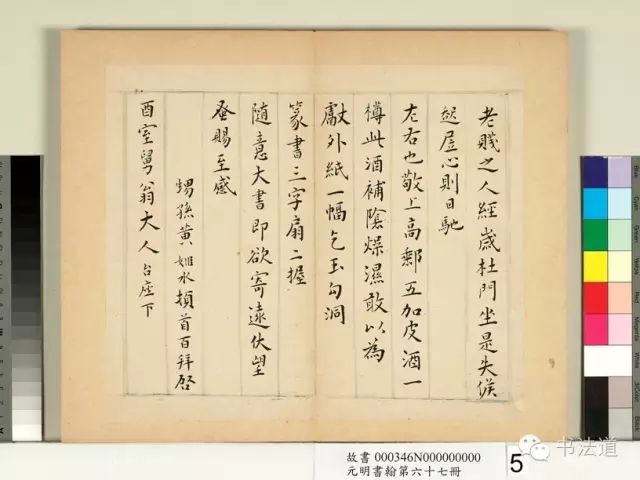 老賤之人經歲杜門坐是失候
起居心則日馳
左右也敬上高郵五加皮酒一
樽此酒補陰燥濕敢以為
獻外紙一幅乞玉勾洞
篆書三字扇二握
隨意大書即欲寄遠伏望
垂賜至感
甥孫黃姬水頓首百拜啓
酉室舅翁大人台座下
故書 000346N000000000
元明書翰第六十七冊
5
书法道